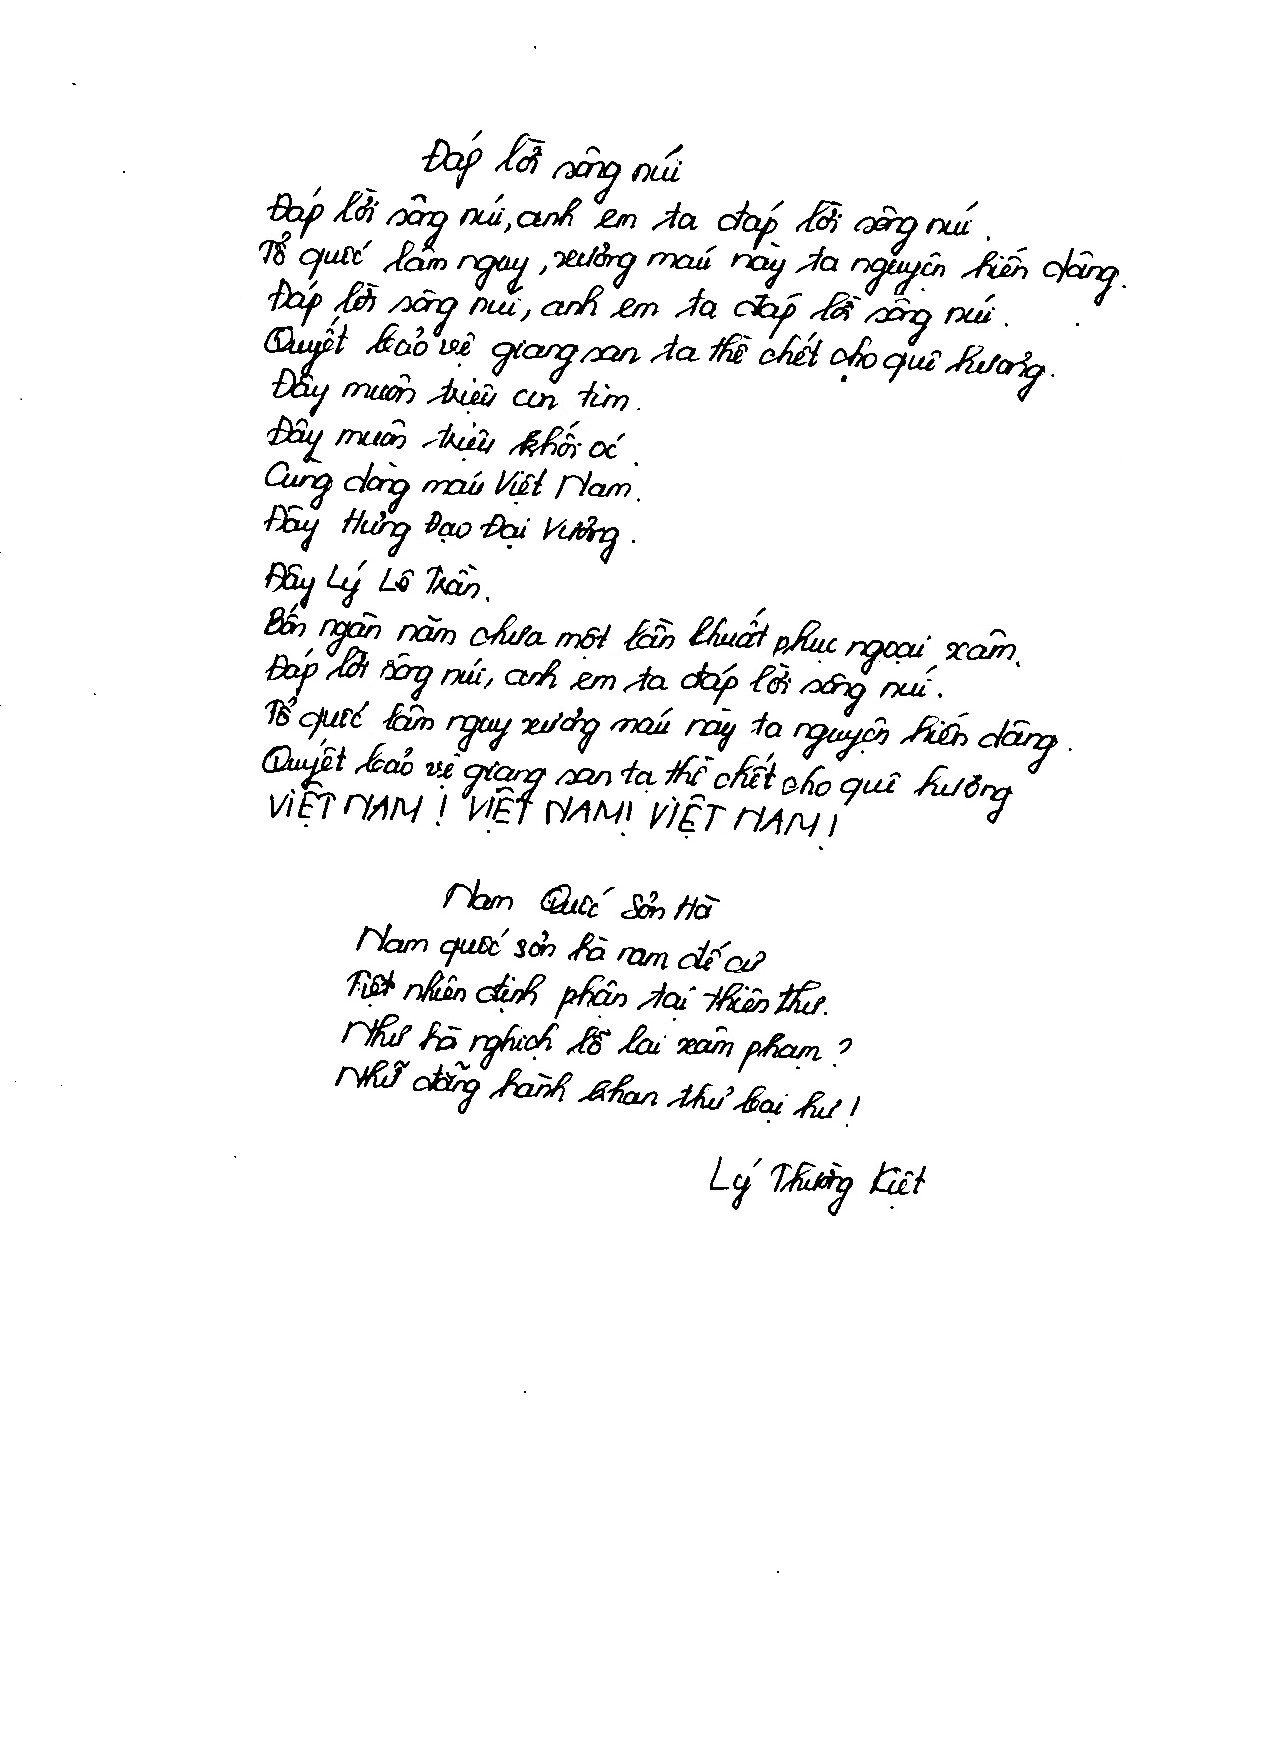 Đáp lời sông núi
Đáp lời sông núi, anh em ta đáp lời sông núi.
Tổ quốc lâm nguy, xương máu này ta nguyện hiến dâng.
Đáp lời sông núi, anh em ta đáp lời sông núi.
Quyết bảo vệ giang san ta thề chết cho quê hương.
Đây muôn triệu con tim.
Đây muôn triệu khối óc.
Cùng dòng máu Việt Nam.
Đây Hưng Đạo Đại Vương.
Đây Lý Lê Trần.
Bốn ngàn năm chưa một lần khuất phục ngoại xâm.
Đáp lời sông núi, anh em ta đáp lời sông núi.
Tổ quốc lâm nguy xương máu này ta nguyện hiến dâng.
Quyết bảo vệ giang san ta thề chết cho quê hương
VIỆT NAM! VIỆT NAM! VIỆT NAM!
Nam Quốc Sơn Hà
Nam quốc sơn hà nam đế cư
Tiệt nhiên định phận tại thiên thư.
Như hà nghịch lỗ lai xâm phạm?
Nhữ đẳng hành khan thư bại hư!
Lý Thường Kiệt